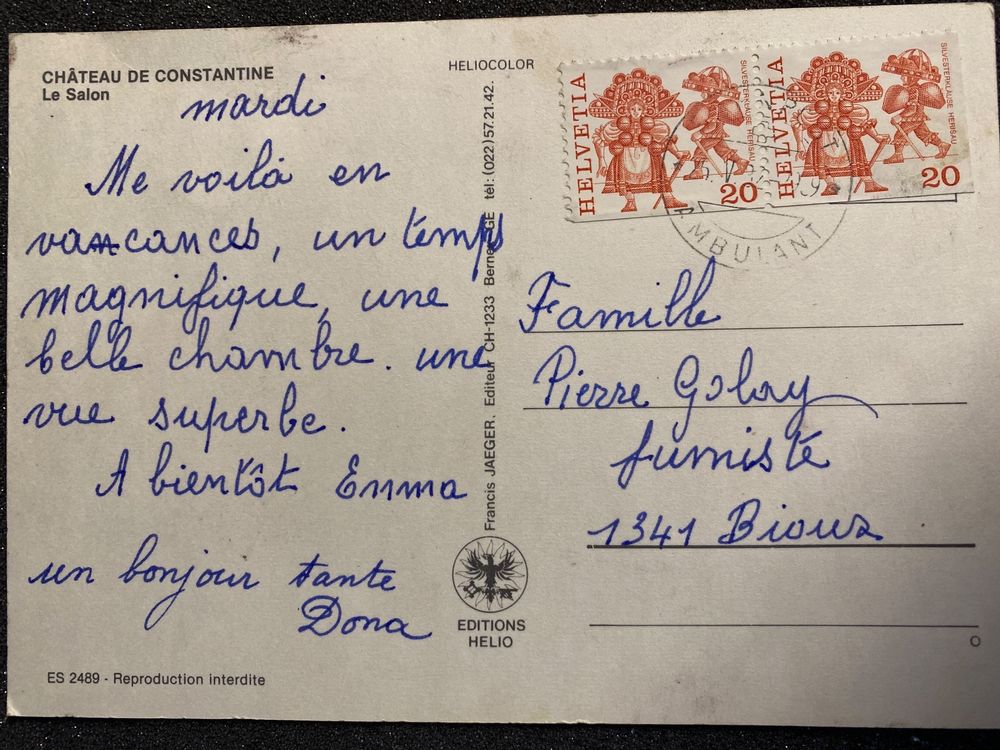 CHÂTEAU DE CONSTANTINE
Le Salon
mardi
Me voilà en
vacances, un temps
magnifique, une
belle chambre. une
vue superbe.
A bientôt Emma
un bonjour tante
Dona
ES 2489 - Reproduction interdite
HELIOCOLOR
Francis JAEGER. Editeur CH-1233 Bernex/GE tél: (022) 57.21.42.
EDITIONS
HELIO
HELVETIA
SILVESTERKLÄUSE HERISAU
20
HELVETIA
SILVESTERKLÄUSE HERISAU
20
AMBULANT
Famille
Pierre Golay
fumiste
1341 Bioux